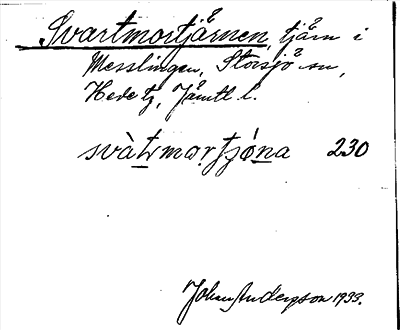 Svartmortjärnen, tjärn i
Messlingen, Storsjö sn,
Hede tg, Jämtl l.
svàtmortjóna 230
Johan Andersson 1933.